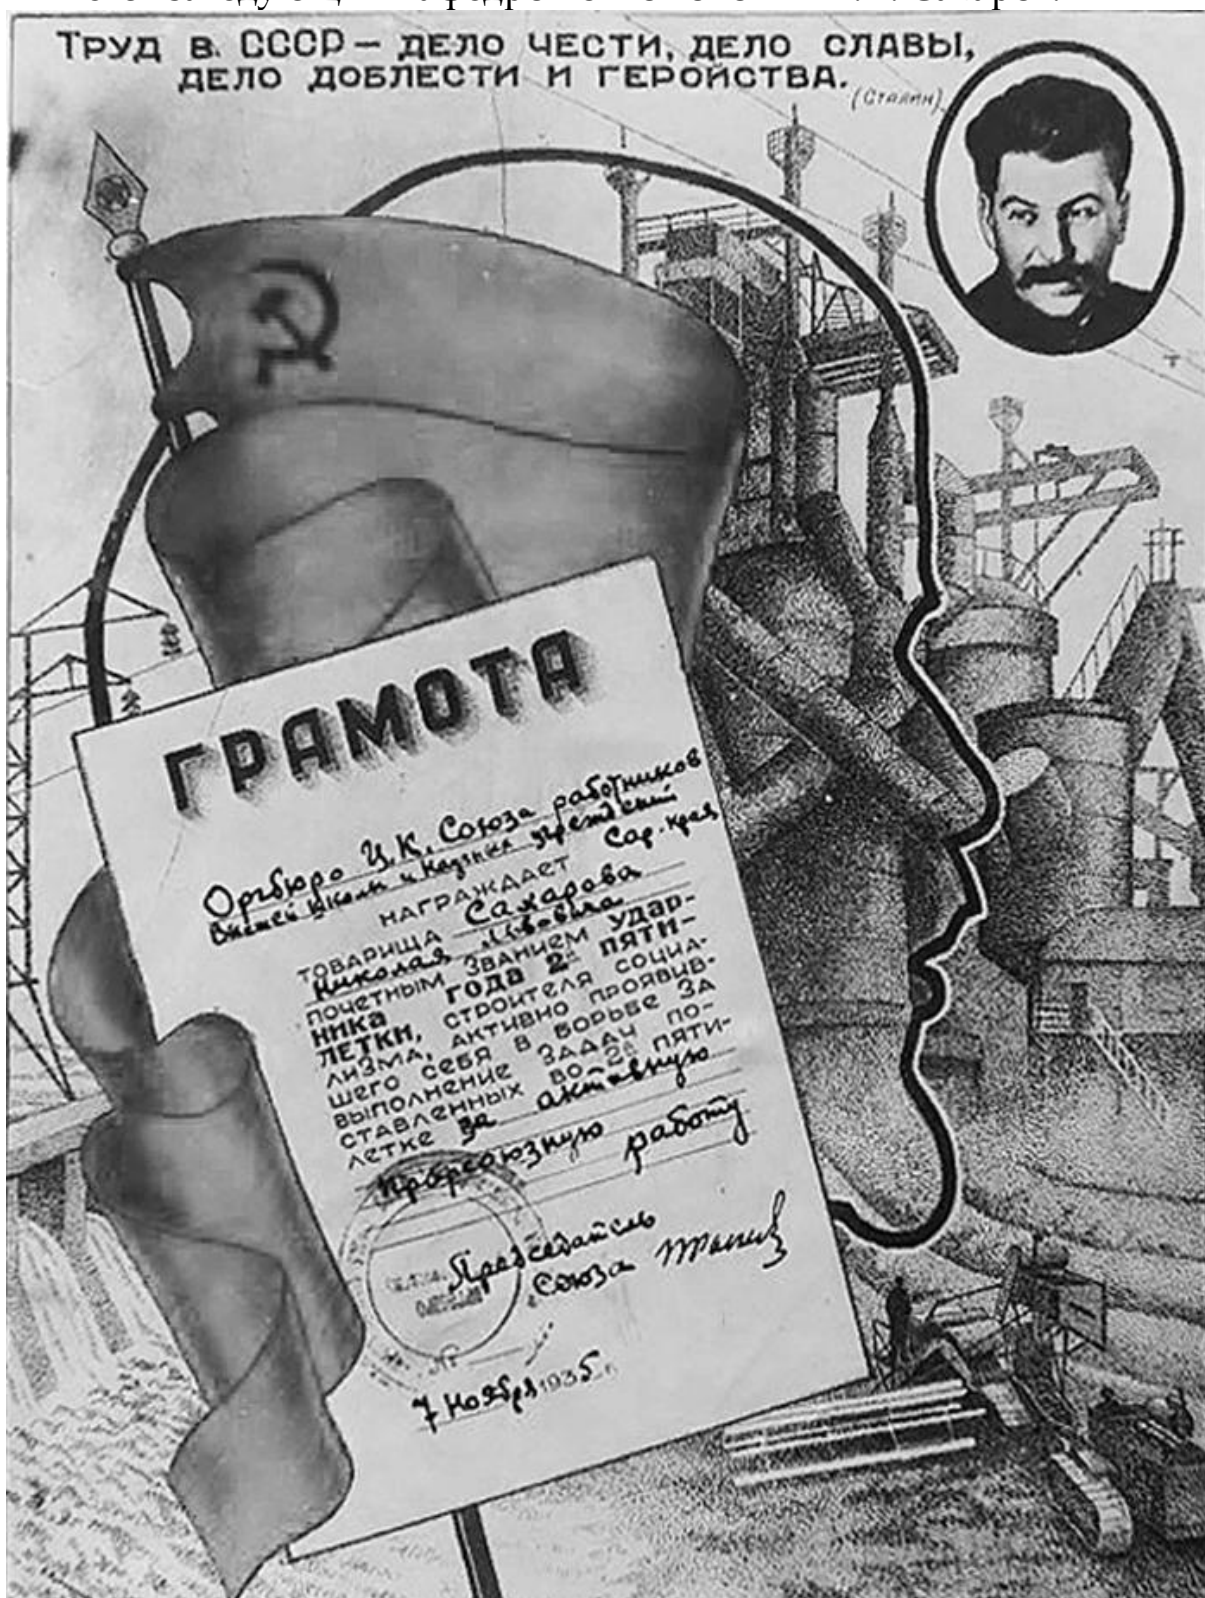 ТРУД В СССР — ДЕЛО ЧЕСТИ, ДЕЛО СЛАВЫ,
ДЕЛО ДОБЛЕСТИ И ГЕРОЙСТВА.
(Сталин)
ГРАМОТА
Оргбюро Ц.К. Союза работников
Высшей Школы и Научных учреждений
НАГРАЖДАЕТ Сар. края
ТОВАРИЩА Сахарова
Николая Льовича
ПОЧЕТНЫМ ЗВАНИЕМ УДАР-
НИКА ГОДА 2й ПЯТИ-
ЛЕТКИ, СТРОИТЕЛЯ СОЦИА-
ЛИЗМА, АКТИВНО ПРОЯВИВ-
ШЕГО СЕБЯ В БОРЬБЕ ЗА
ВЫПОЛНЕНИЕ ЗАДАЧ ПО-
СТАВЛЕННЫХ ВО 2й ПЯТИ-
ЛЕТКЕ за активную
профсоюзную работу
Председатель
Союза
7 Ноября 1935 г.